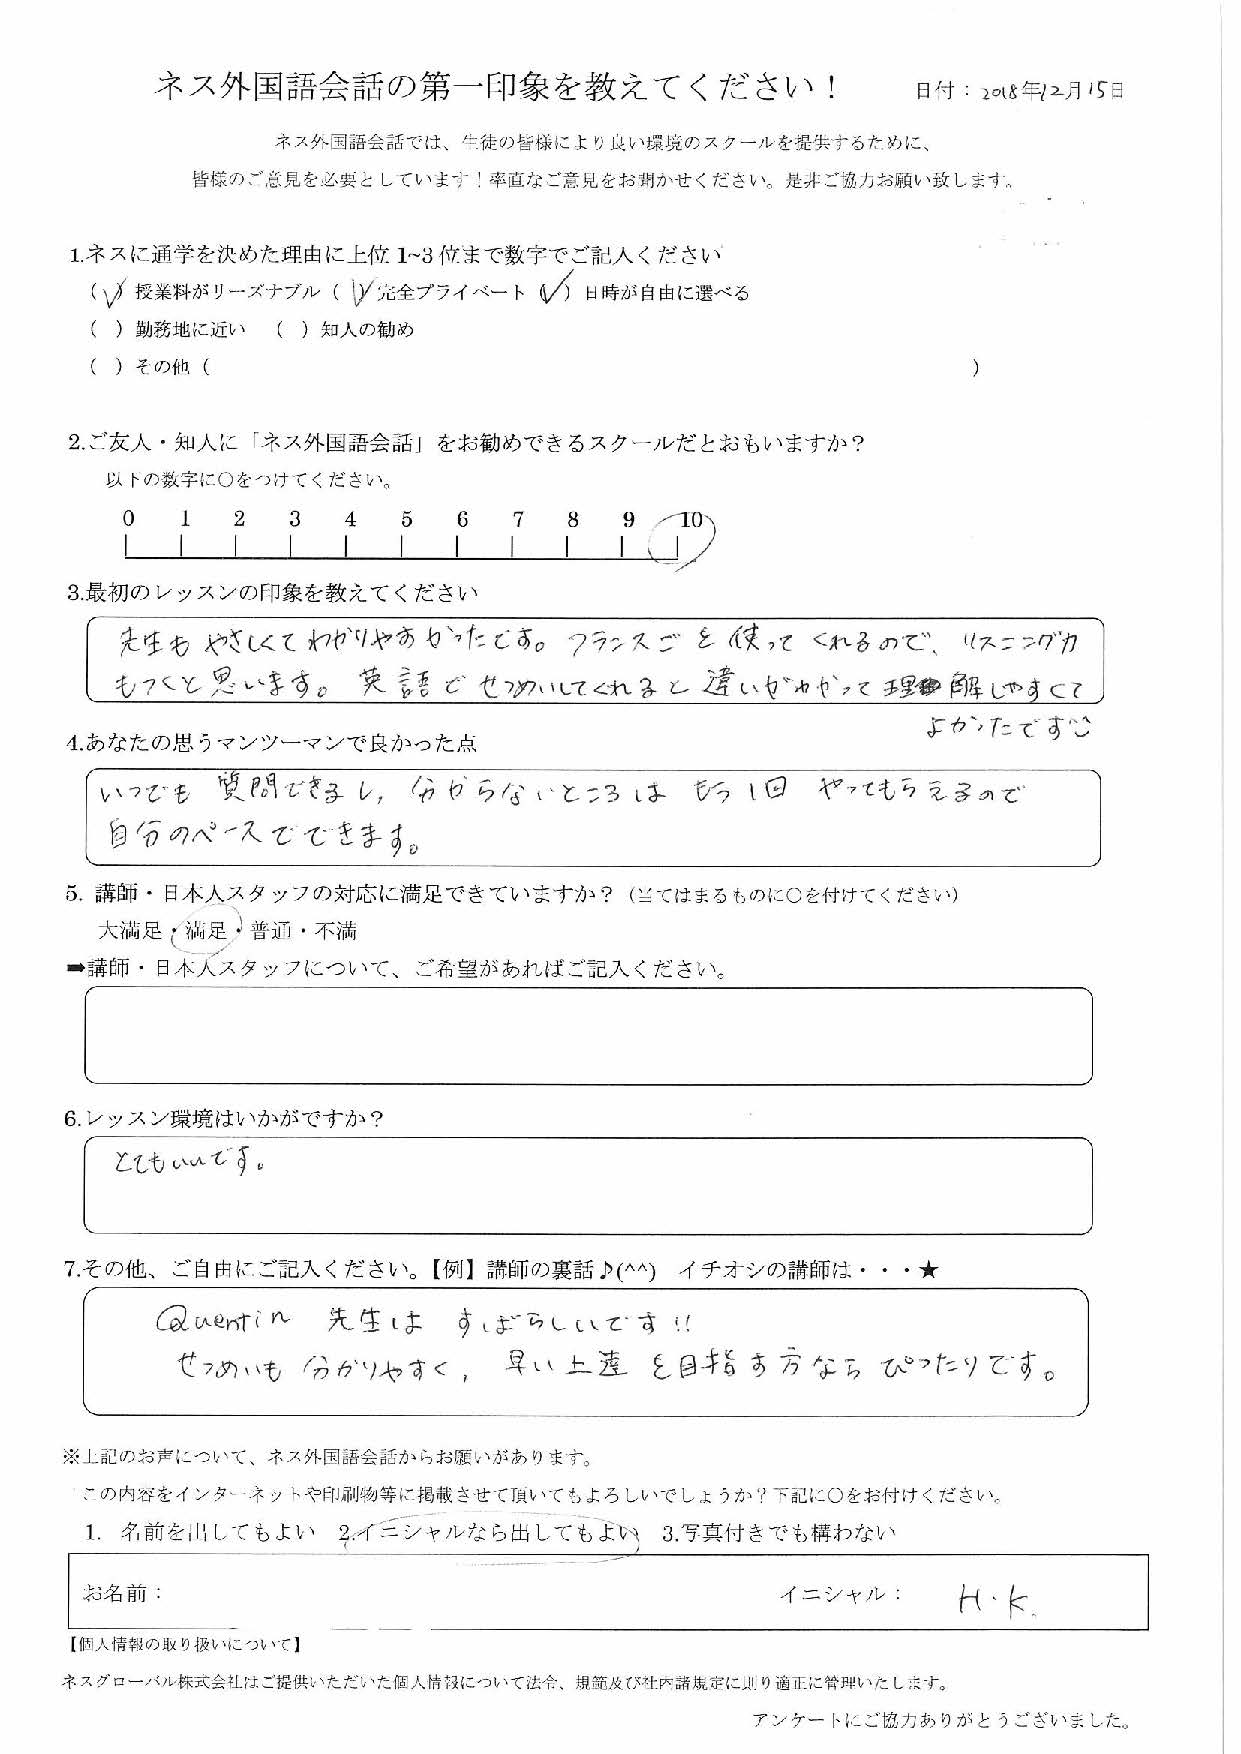 ネス外国語会話の第一印象を教えてください！ 日付：2018年12月15日
ネス外国語会話では、生徒の皆様により良い環境のスクールを提供するために、
皆様のご意見を必要としています！率直なご意見をお聞かせください。是非ご協力お願い致します。
1.ネスに通学を決めた理由に上位 1~3 位まで数字でご記入ください
（✓）授業料がリーズナブル（✓）完全プライベート（✓）日時が自由に選べる
（ ）勤務地に近い （ ）知人の勧め
（ ）その他（ ）
2.ご友人・知人に「ネス外国語会話」をお勧めできるスクールだとおもいますか？
以下の数字に〇をつけてください。
0 1 2 3 4 5 6 7 8 9 10
3.最初のレッスンの印象を教えてください
先生も やさしくて わかりやすかったです。フランスごを使って くれるので、リスニング力
もつくと思います。英語で せつめいしてくれると 違いがわかって 理解しやすくて
よかったです
4.あなたの思うマンツーマンで良かった点
いつでも 質問できるし, 分からないところは もう1回 やってもらえるので
自分のペースでできます。
5. 講師・日本人スタッフの対応に満足できていますか？（当てはまるものに〇を付けてください）
大満足・満足・普通・不満
➡講師・日本人スタッフについて、ご希望があればご記入ください。
6.レッスン環境はいかがですか？
とてもいいです。
7.その他、ご自由にご記入ください。【例】講師の裏話♪(^^) イチオシの講師は・・・★
Quentin 先生は すばらしいです!!
せつめいも 分かりやすく, 早い上達 を目指す方なら ぴったりです。
※上記のお声について、ネス外国語会話からお願いがあります。
この内容をインターネットや印刷物等に掲載させて頂いてもよろしいでしょうか？下記に〇をお付けください。
1. 名前を出してもよい 2.イニシャルなら出してもよい 3.写真付きでも構わない
お名前： イニシャル： H.K.
【個人情報の取り扱いについて】
ネスグローバル株式会社はご提供いただいた個人情報について法令、規範及び社内諸規定に則り適正に管理いたします。
アンケートにご協力ありがとうございました。